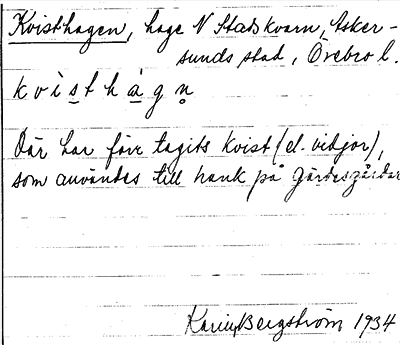 Kvisthagen, hage N Stadskvarn, Asker-
sunds stad, Örebro l.
kvìsthàgn̥
Där har förr tagits kvist (el. vidjor),
som användes till hank på gärdesgårdar
Karin Bergström 1934